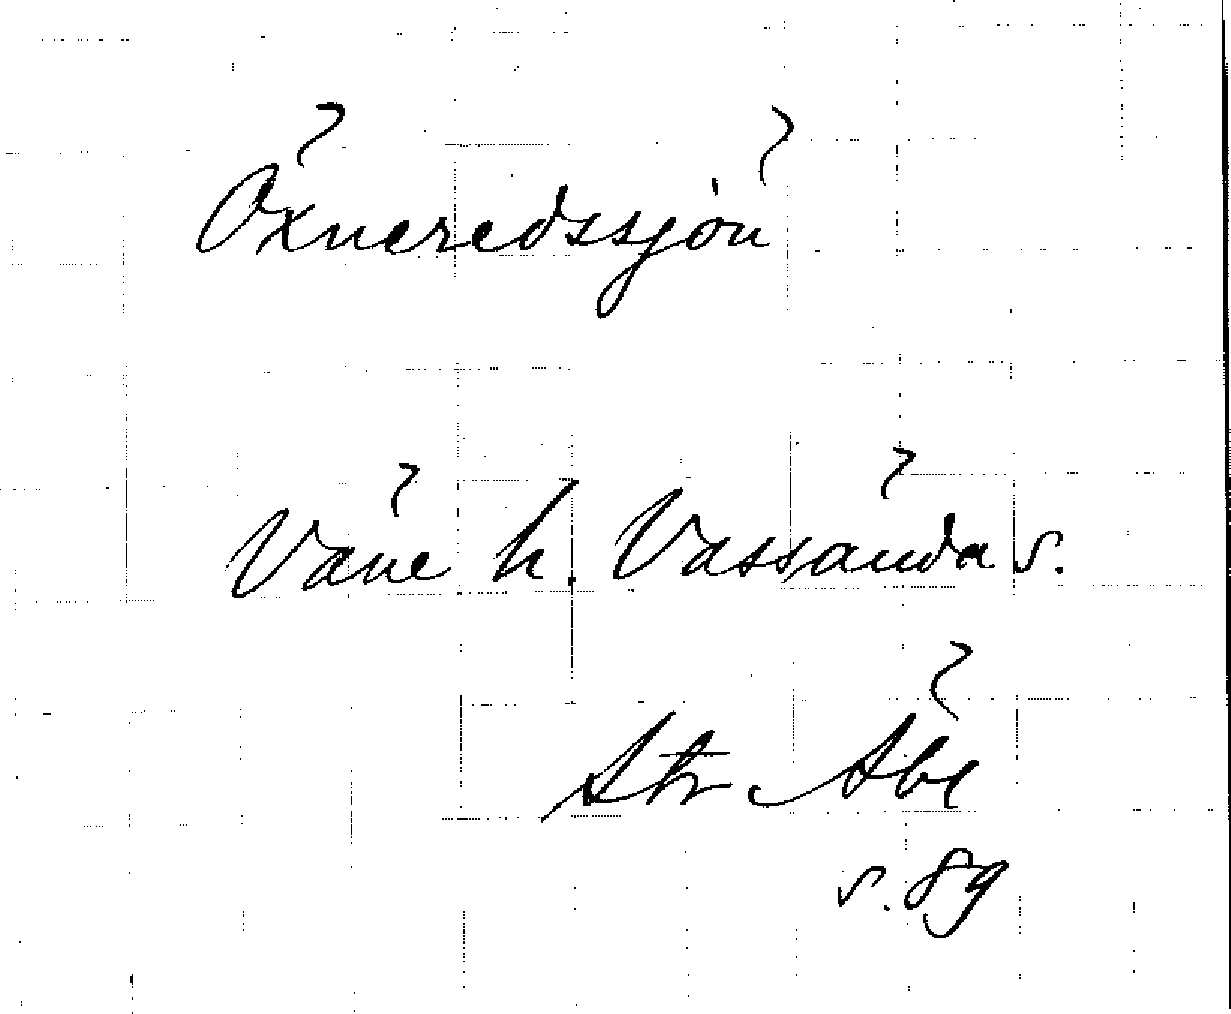 Öxneredssjön
Väne h. Vassända s.
Str Åbe
s. 89